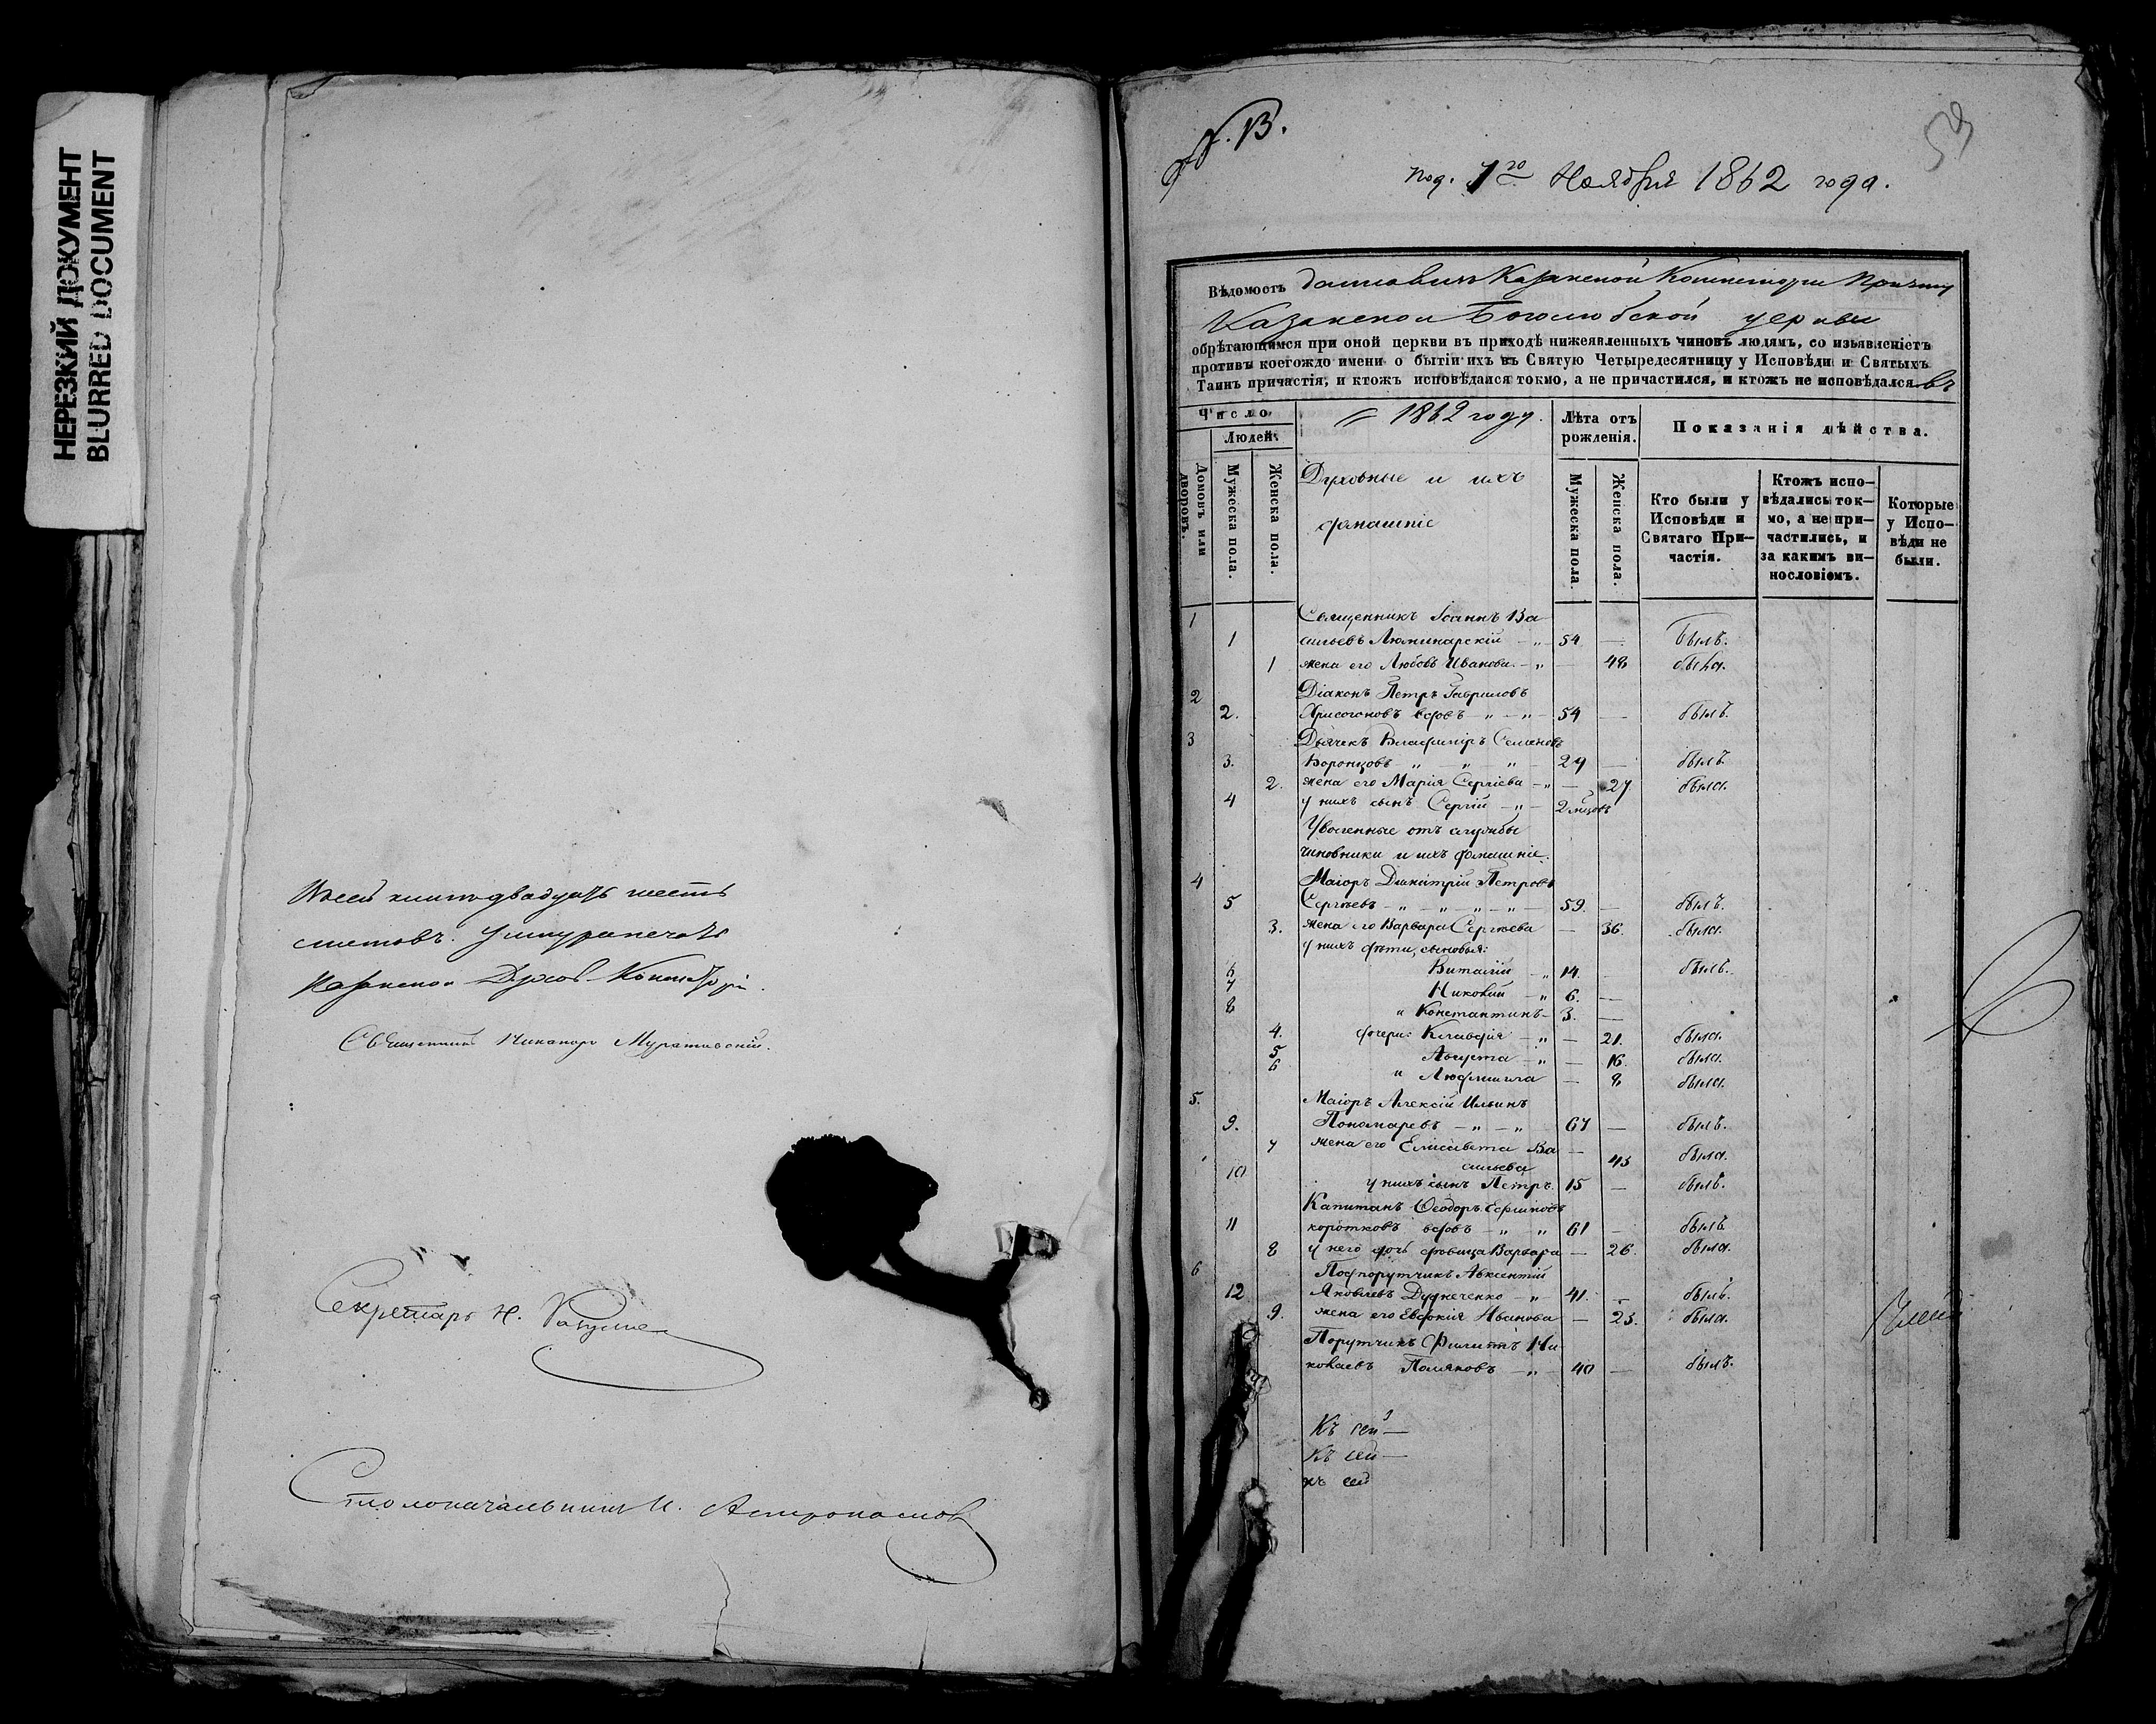 НЕРЕЗКИЙ ДОКУМЕНТ
BLURRED DOCUMENT
двадцать шесть
листовъ.
Казанской Духов. Консисторіи.
Священникъ Никаноръ
Секретарь Н.
Столоначальникъ И.
N. B.
под. 1го Ноября 1862 года.
Вѣдомость Казанской Консисторіи Причту
Казанской Боголюбской церкви
обрѣтающимся при оной церкви въ приходѣ нижеявленныхъ чиновъ людямъ, со изьявленіемъ
противъ коегождо имени о бытіи ихъ въ Святую Четыредесятницу у Исповѣди и Святыхъ
Таинъ причастія, и ктожъ исповѣдался токмо, а не причастился, и ктожъ не исповѣдался въ
Число
1862 году.
Лѣта отъ рожденія.
Показанія дѣйства.
Людей.
Домовъ или дворовъ.
Мужеска пола.
Женска пола.
Духовные и ихъ
домашніе
Мужеска пола
Женска пола.
Кто были у Исповѣди и Святаго При-частія.
Ктожъ испо-вѣдались ток-мо, а не при-частились, и за какимъ ви-нословіемъ.
Которые у Испо-вѣди не были.
1 Священникъ Іоаннъ Ва
1 сильевъ Люминарскій - „ 54 — былъ.
1 жена его Любовь Иванова - „ — 48 была.
2 Діаконъ Петръ Гавриловъ
2. Хрисогоновъ вдовъ - „ - „ 54 — былъ.
3 Дьячекъ Владиміръ Семеновъ
3. Воронцовъ „ „ „ 29 — былъ.
2. жена его Марія Сергіева - „ — 27 была.
4 у нихъ сынъ Сергій - „ 2 мѣсцовъ
Уволенные отъ службы
чиновники и ихъ домашніе.
4 Маіоръ Димитрій Петровъ
5 Сергѣевъ - „ - „ - „ - „ 59. — былъ.
3. жена его Варвара Сергѣева — 36. была.
у нихъ дѣти, сыновья:
6 Виталій „ 14. — былъ.
7 Николай „ 6. —
8 „ Константинъ - 3. —
4. дочери: Клавдія - „ — 21. была.
5 Августа - „ — 16. была.
6 „ Людмила — 8 была.
5. Маіоръ Алексій Ильинъ
9. Пономаревъ - „ - „ 67 — былъ.
7 жена его Елисавета Ва —
сильева 45 была.
10 у нихъ сынъ Петръ. 15 — былъ.
Капитанъ Ѳеодоръ Ефимовъ
11 коротковъ вдовъ - „ „ 61 — былъ
8 у него дочь дѣвица Варвара — 26. была.
6 Подпорутчикъ Авксентій
12 Яковлевъ Дудниченко - „ 41. — былъ.
9. жена его Евдокія Иванова — 25. была.
Порутчикъ Филиппъ Ни
колаевъ Поляковъ - „ 40 — былъ.
Къ сей —
Къ сей —
къ сей